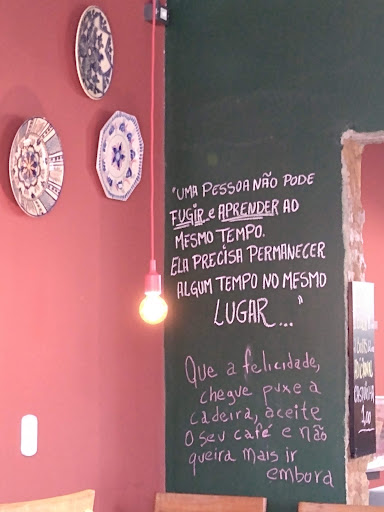 "UMA PESSOA NÃO PODE
FUGIR e APRENDER AO
MESMO TEMPO.
ELA PRECISA PERMANECER
ALGUM TEMPO NO MESMO
LUGAR..."
Que a felicidade,
chegue puxe a
cadeira, aceite
o seu café e não
queira mais ir
embora
1,00